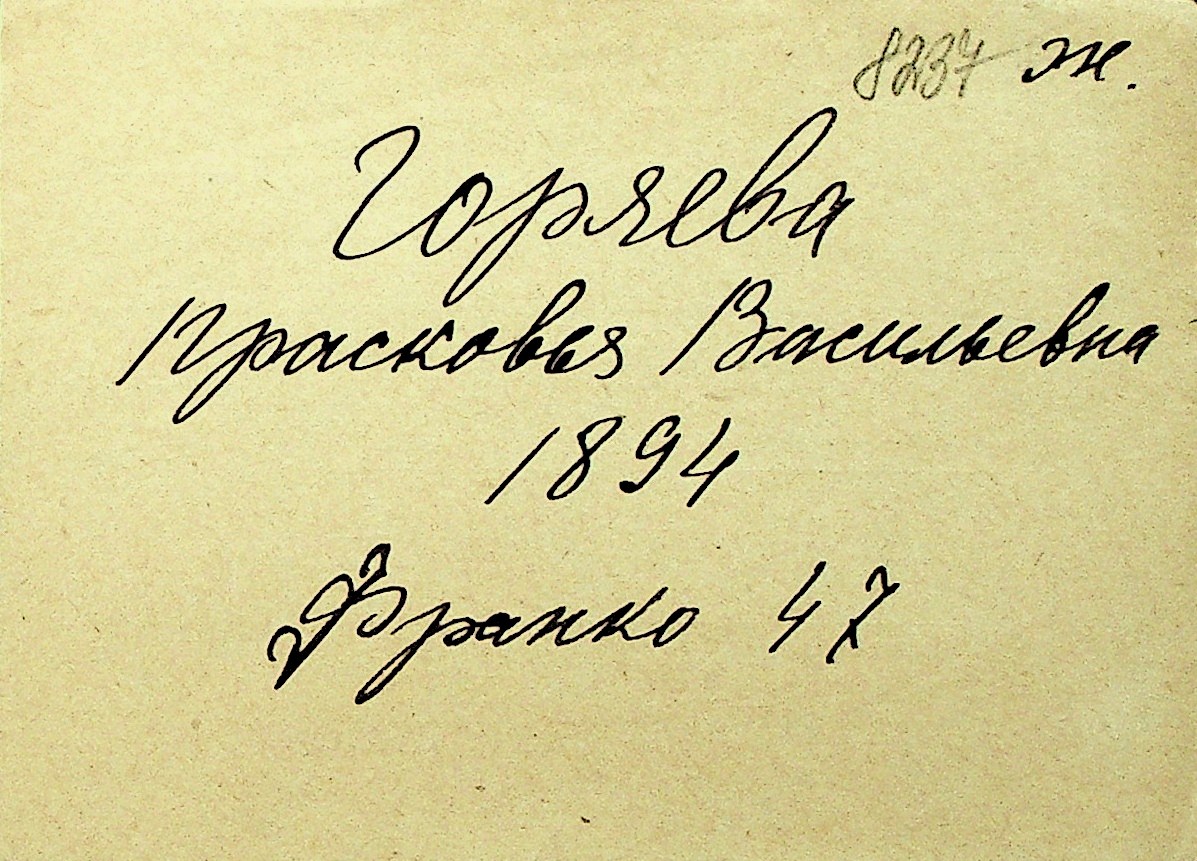 8237 ж.
Горяева
Прасковья Васильевна
1894
Франко 47